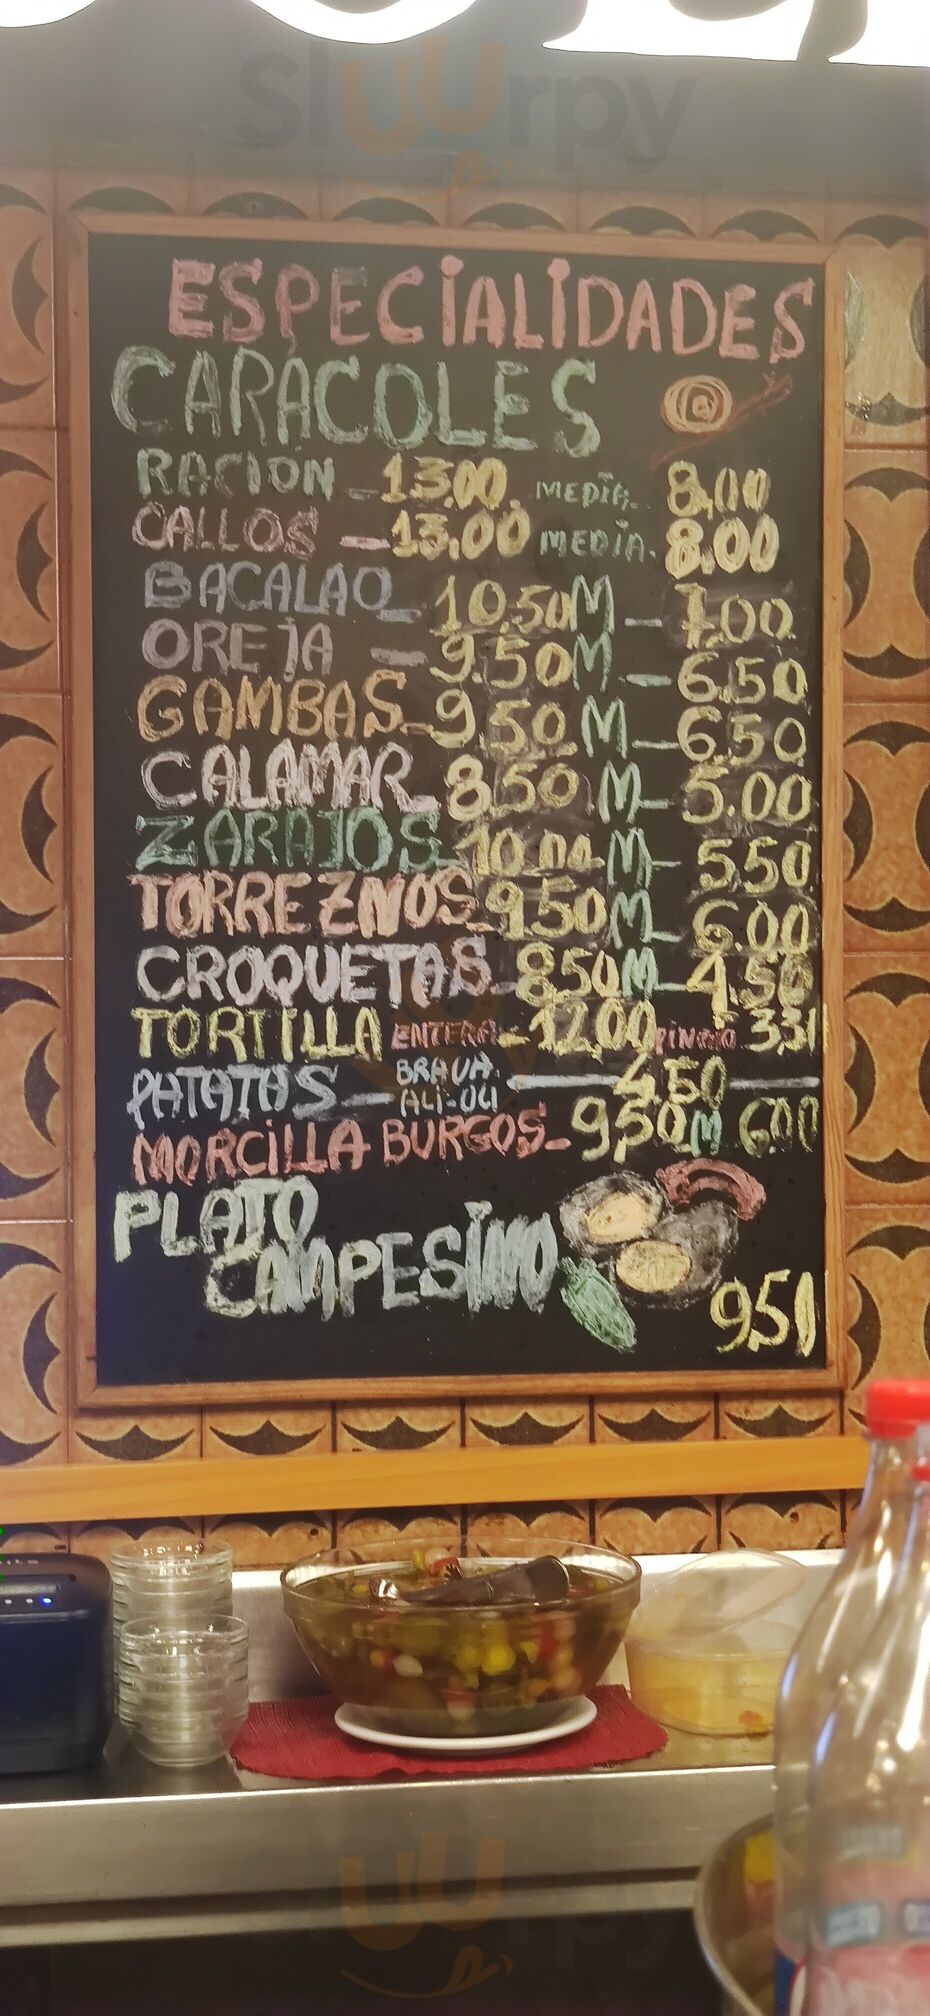 Sluurpy
ESPECIALIDADES
CARACOLES
RACION - 13.00. MEDIA. 8,00
CALLOS - 13,00 MEDIA. 8.00
BACALAO - 10.50 M - 7.00
OREJA - 9.50 M - 6.50
GAMBAS - 9.50 M - 6.50
CALAMAR 8.50 M - 5.00
ZARAJOS - 10.00 M - 5.50
TORREZNOS - 9.50 M - 6.00
CROQUETAS - 8.50 M - 4.50
TORTILLA ENTERA - 12.00 PINCHO
PATATAS - BRAVA. 4.50
ALI-OLI
MORCILLA BURGOS - 9,50 M 6.00
PLATO
CAMPESINO
Sluurpy